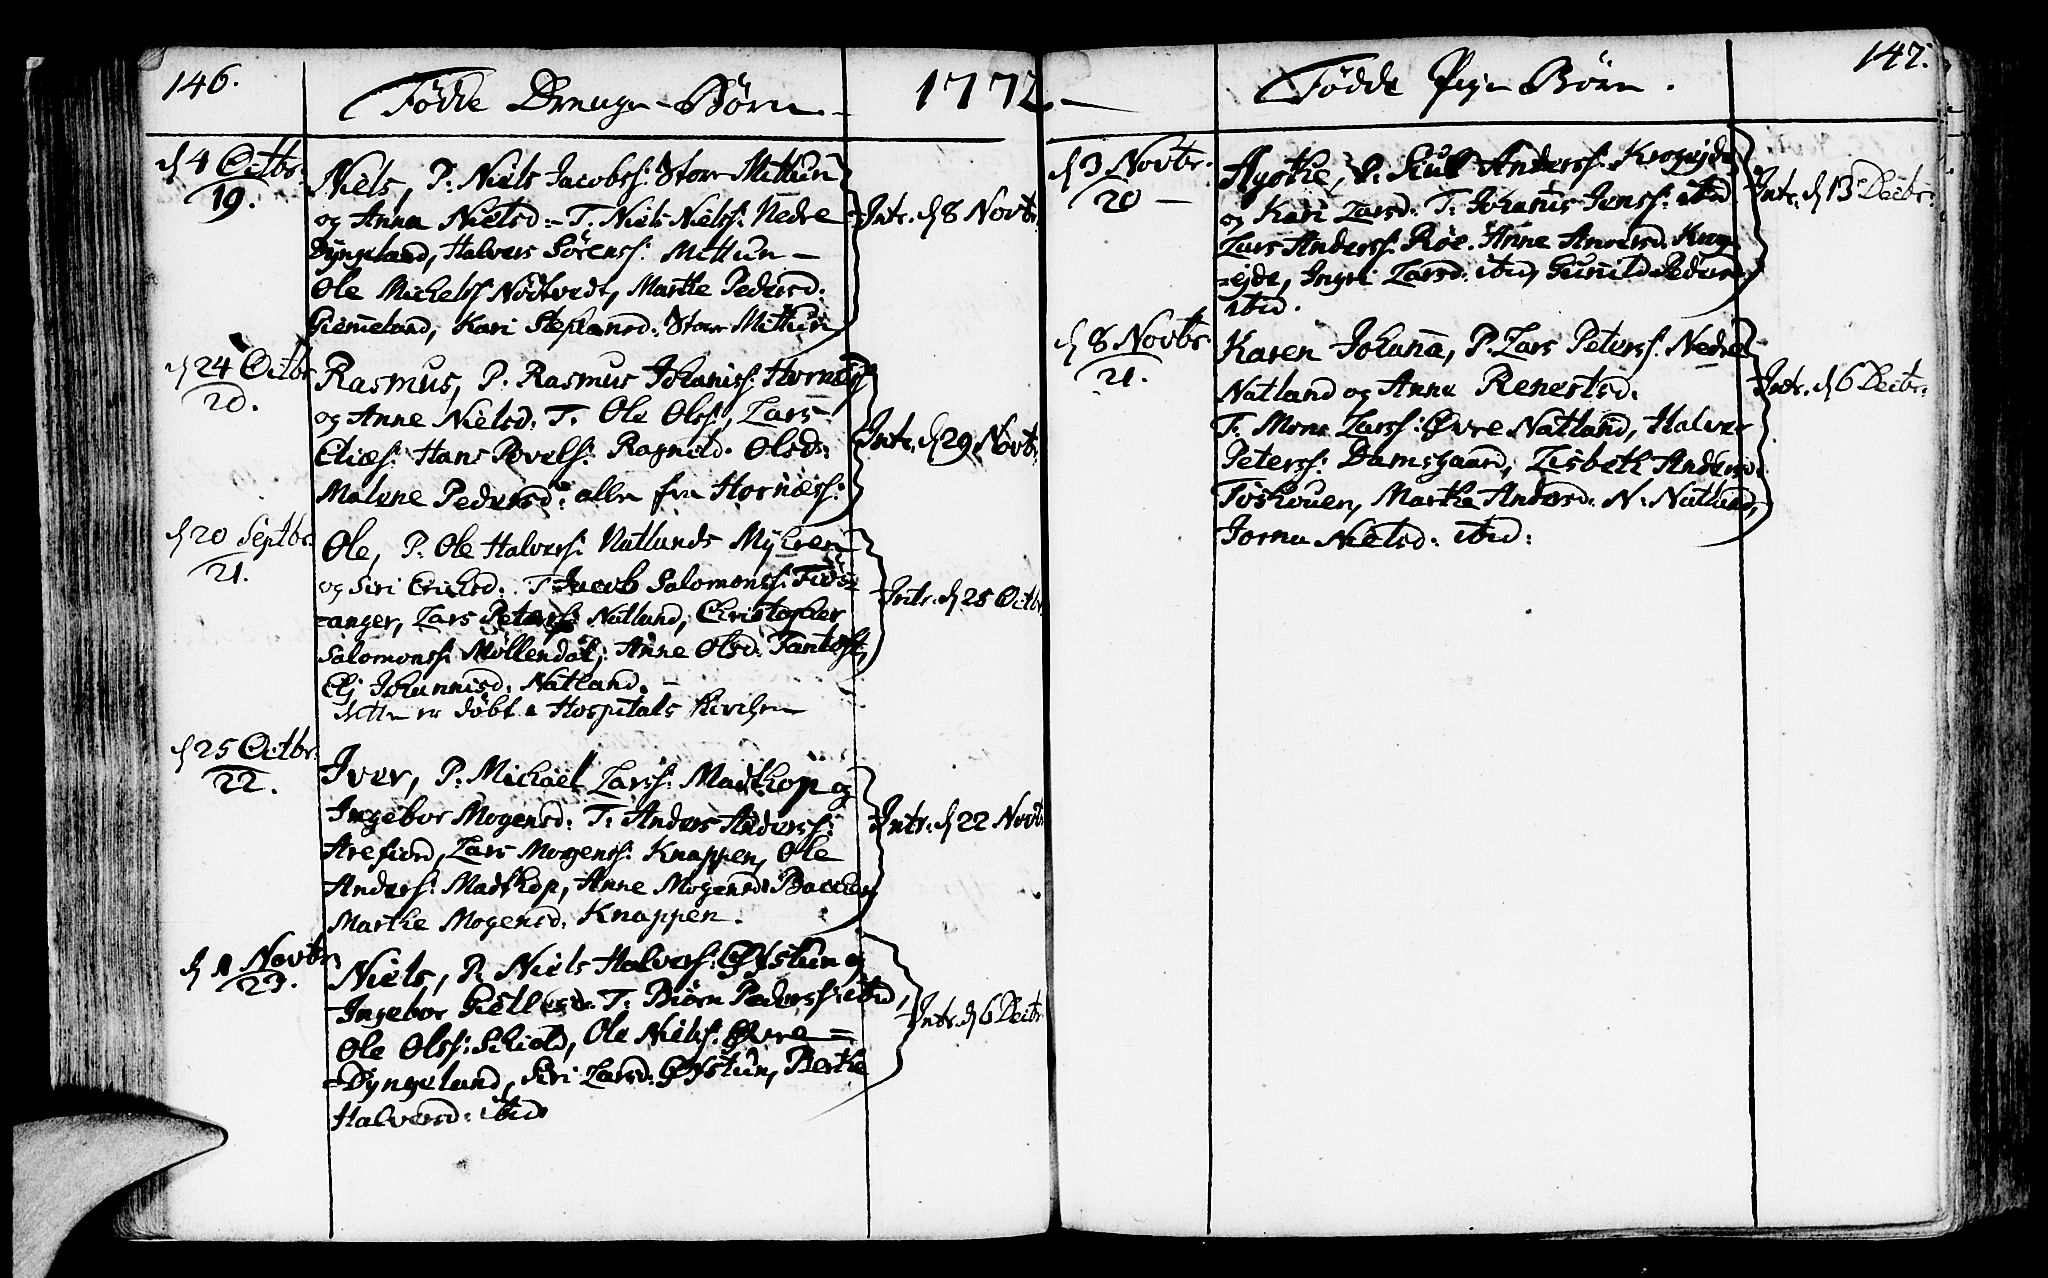 146.
Födde Drenge-Börn
1772.
d 4 Octbr.
19.
Niels, P. Niels Jacobss: Store Mittun
og Anna Nielsd:- T. Niels Nielss: Nedre
Dyngeland, Halvers Sörenss: Mittun -
Ole Michelss Nödtvedt, Marthe Pedersd:
Giemeland, Kari Stephansd: Store Mittun
Intr. d 8 Novbr.
d 24 Octbr
20.
Rasmus, P. Rasmus Johaniss: Hornæss
og Anne Nielsd. T. Ole Olss, Lars
Eliæs: Hans Povels: Ragnild. Olsd:
Malene Pedersd: alle fra Hornæss:
Intr. d 29 Novbr
d 20 Septbr.
21.
Ole, P. Ole Halvers: Natlands Myhren
og Siri Erichsd. T. Jacob Salomonss:
=anger, Lars Peterss: Natland, Christopher
Salomonss: Möllendal, Anne Olsd: Fantoft,
Elj Johannisd. Natland. -
dette er döbt i Hospitals Kirchen
Intr. d 25 Octbr
d 25 Octbr.
22.
Iver, P. Michael Larss: Madthop og
Ingebor Mogensd: T. Anders Anderss:
Arefiord, Lars Mogenss: Knappen, Ole
Anders: Madthop, Anne Mogensd: Backen
Marthe Mogensd: Knappen.
Intr. d 22 Novb
d 1 Novbr.
23.
Niels, P. Niels Halvers: Öfstun og
Ingebor T. Biörn Pederss: ibid,
Ole Olss: Schiold, Ole Nielss: Övre =
=Dyngeland, Siri Larsd: Öfstun, Berthe
Halversd: ibid
Intr. d 6 Decbr
147.
Födde Pige Börn.
d 3 Novbr.
20 -
Agothe, P. Siul Anderss: Krogejde
og Kari Larsd: T. Johanis Jonss: ibid
Lars Anderss: Röe. Anne Andersd. Krog-
=ejde, Ingri Larsd: ibid, Gunild Peders
ibid.
Intr. d 13 Decbr.
d 8 Novbr
21.
Karen Johana, P. Lars Peterss: Nedre
Natland og Anne Renertsd.
T. Mons Larss: Övre Natland, Halver
Peterss: Damsgaard, Lisbeth Andersd.
Toskouen, Marthe Andersd. N: Natland,
Jorna Nielsd: ibid:
Intr. d 6 Decbr.